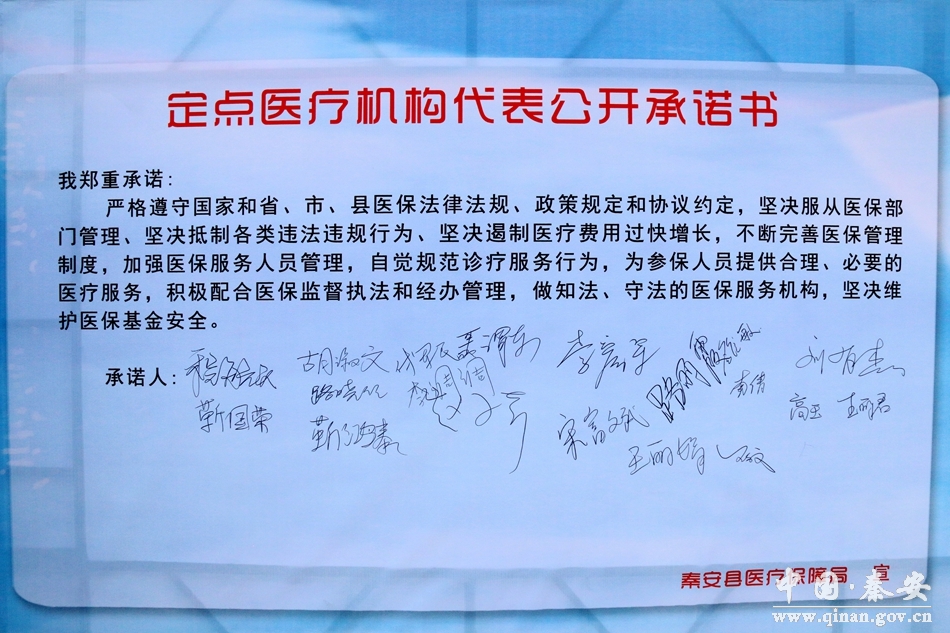 定点医疗机构代表公开承诺书
我郑重承诺：
严格遵守国家和省、市、县医保法律法规、政策规定和协议约定，坚决服从医保部
门管理、坚决抵制各类违法违规行为、坚决遏制医疗费用过快增长，不断完善医保管理
制度，加强医保服务人员管理，自觉规范诊疗服务行为，为参保人员提供合理、必要的
医疗服务，积极配合医保监督执法和经办管理，做知法、守法的医保服务机构，坚决维
护医保基金安全。
承诺人：
胡淑文
李宏军
南倩
靳国荣
宋富斌
高玉
王丽君
王丽娟
秦安县医疗保障局 宣
中国·秦安
www.qinan.gov.cn